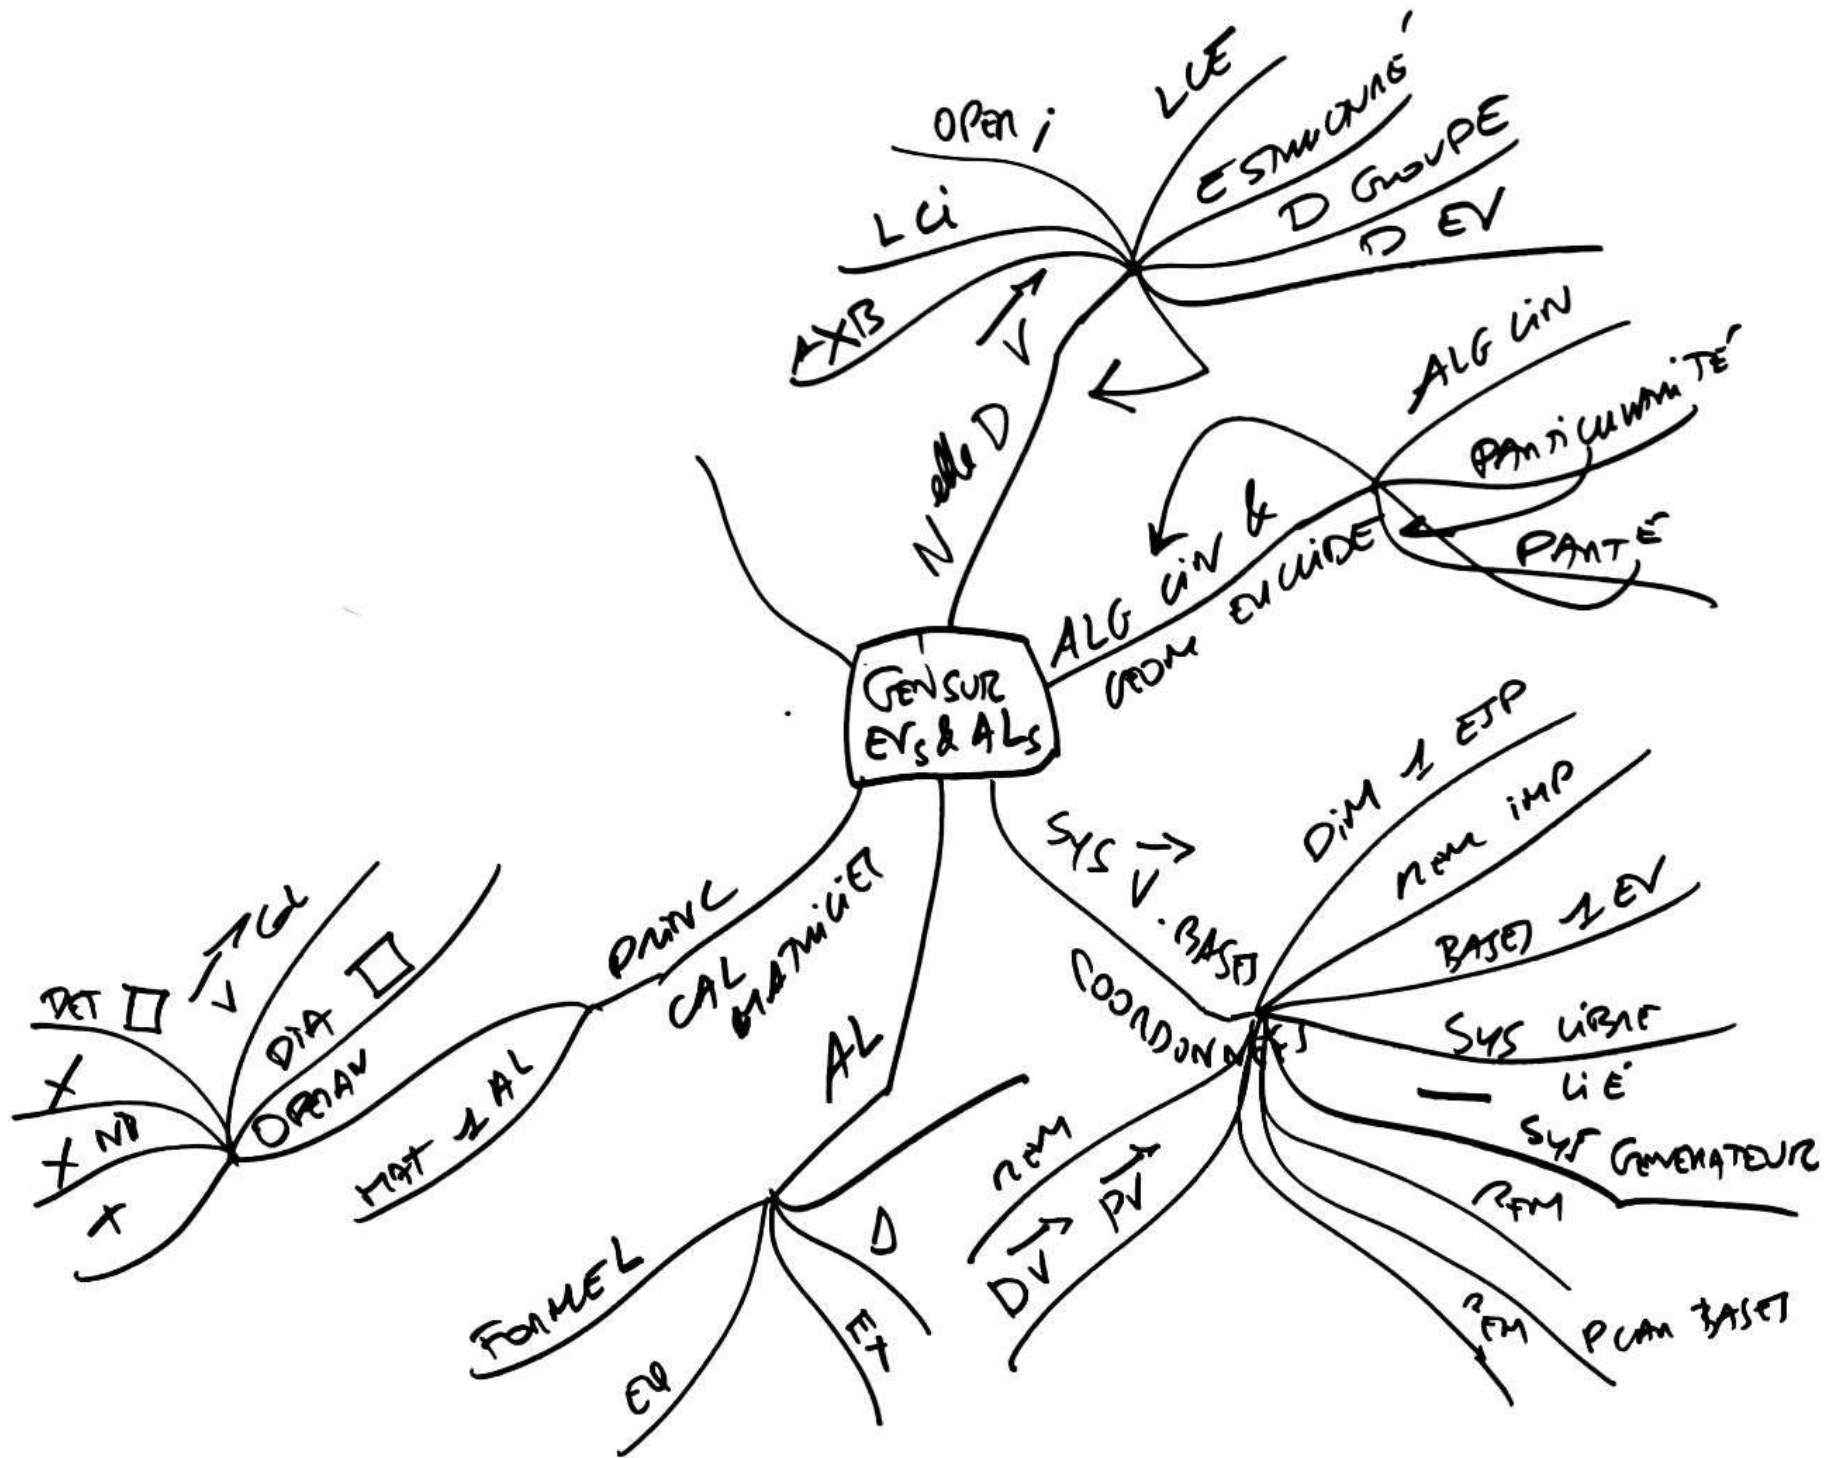 GEN SUR
EVs & ALs
Nelle D
AXB
LCi
OPER i
LCE
ESTRUCTURÉ
D GROUPE
D EV
V
ALG LiN &
GEOM EUCLIDE
ALG LiN
PARTICULARITÉ
SYS V . BASES
COORDONNÉES
DiM 1 ESP
REM iMP
BASES 1 EV
SYS LiBRE
— LiÉ
SYS GENERATEUR
REM
PLAN BASES
REM
DV PV
REM
AL
D
EX
EQ
FORME L
PRiNC
CAL
MATRiCiEL
MAT 1 AL
OPERAV
DIA □
V Col
DET □
X
X NB
+